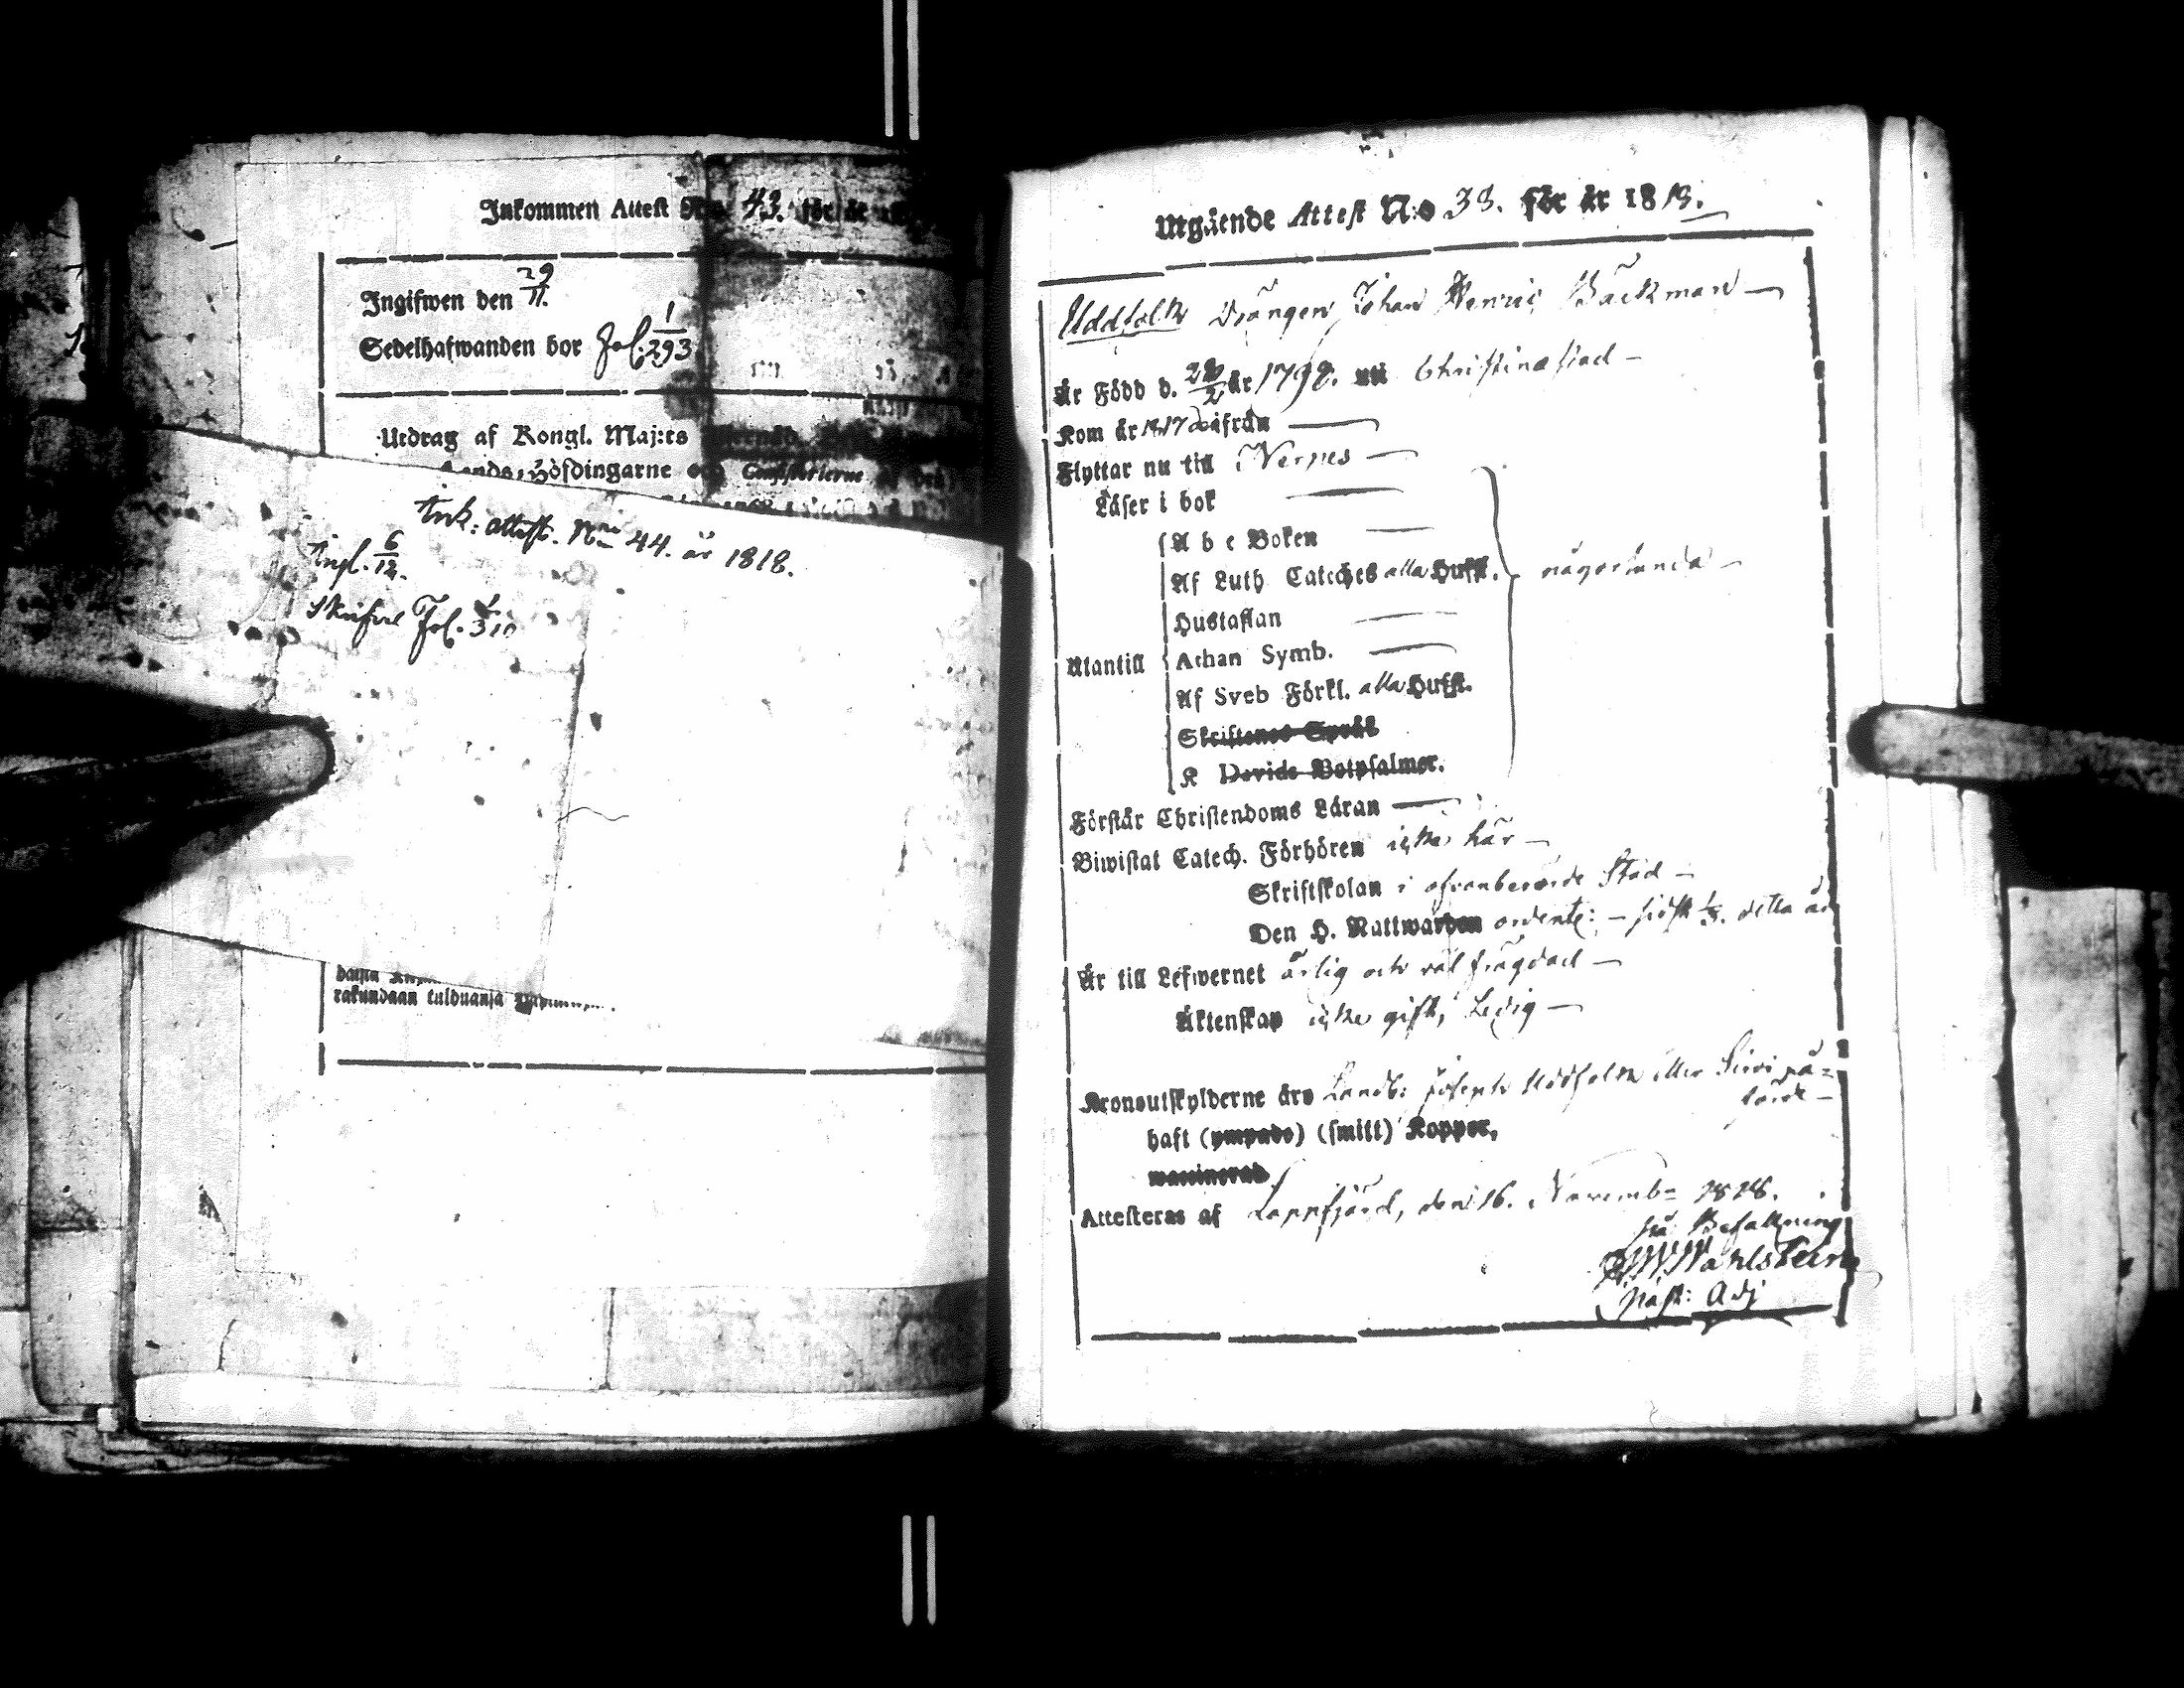 Inkommen Attest N:o 43. för år
Ingifwen den 29/11.
Sedelhafwanden bor Fol. 1/293
Utdrag af Kongl. Maj:ts
Lands-Höfdingarne och Consistorierne
Ink: attest. N:o 44. år 1818.
Ingl. 6/12.
Skrifven Fol. 310
rakundaan tulduansa
Utgående Attest N:o 38. för år 1818.
Uddfolk Drängen Johan Henric Bäckman —
Är Född d. 28/2 år 1798. uti Christinæstad —
Kom år 1817 ifrån —
Flyttar nu till Nerpes —
Läser i bok —
A b c Boken —
Af Luth Cateches alla Hufst. någorlunda —
Hustaflan —
Utantill Athan Symb. —
Af Sveb Förkl. alla Hufst.
Skriftenes Språk
K Davids Botpsalmer.
Förstår Christendoms Läran —
Biwistat Catech. Förhören icke här —
Skriftskolan i ofvanberörde Stad —
Den H. Nattwarden ordentl: — sidst detta år
Är till Lefwernet ärlig och väl frägdad —
Äktenskap icke gift, Ledig —
Kronoutskylderne äro Landb: Joseph Uddfolk eller Siri på-
förde —
haft (ympade) (smitt) Koppor,
waccinerad
Attesteras af Lappfjärd, den 16. Novemb= 1818.
På Befallning
Wahlstein
Past: Adj